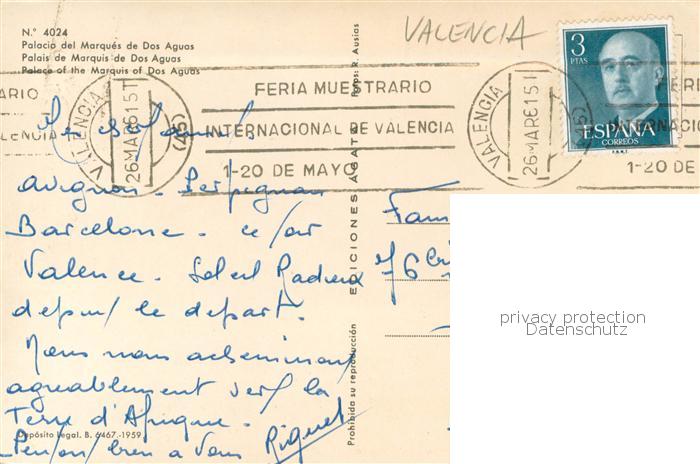 N.° 4024
Palacio del Marqués de Dos Aguas
Palais de Marquis de Dos Aguas
Palace of the Marquis of Dos Aguas
VALENCIA
Fotps: R. Ausias
3
PTAS
ESPAÑA
CORREOS
F.N.M.T
VALENCIA
26 MAR 61 15T
FERIA MUESTRARIO
INTERNACIONAL DE VALENCIA
1-20 DE MAYO
VALENCIA
26 MAR 61 15T
1-20 DE
Avignon - Perpignan
Barcelone - ce soir
Valence - Soleil Radieux
depuis le départ.
Nous nous acheminons
agreablement vers la
Terre d'Afrique -
Pensons bien a Vous
Fam
EDICIONES AGATA
Prohibida su reproducción
Depósito Legal. B. 6467-1959
privacy protection
Datenschutz